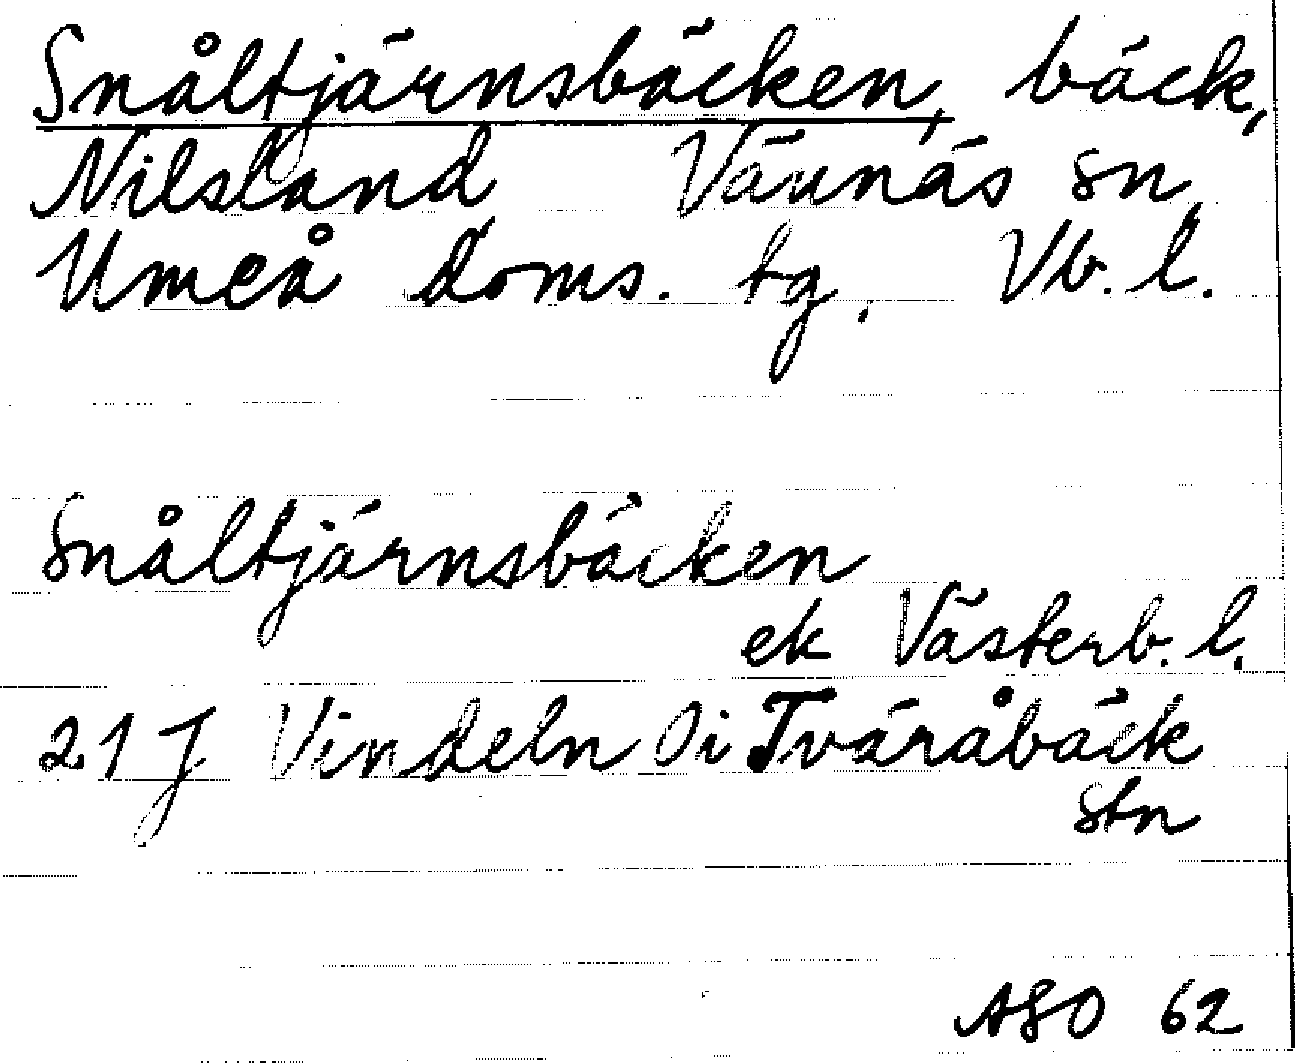 Snåltjärnsbäcken, bäck,
Nilsland Vännäs sn,
Umeå doms. tg. Vb. l.
Snåltjärnsbäcken
ek Västerb. l.
21 J Vindeln Si Tväråbäck
stn
ASO 62